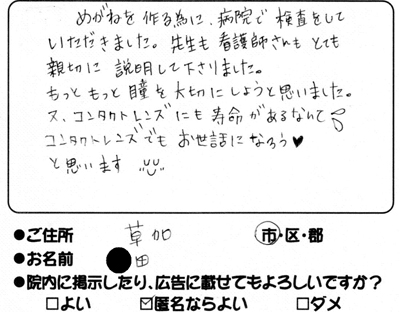 めがねを作る為に、病院で検査をして
いただきました。先生も看護師さんもとても
親切に説明して下さりました。
もっともっと瞳を大切にしようと思いました。
又、コンタクトレンズにも寿命があるなんて
コンタクトレンズでもお世話になろう♥
と思います
●ご住所 草加 市・区・郡
●お名前 田
●院内に掲示したり、広告に載せてもよろしいですか？
□よい ☑匿名ならよい □ダメ